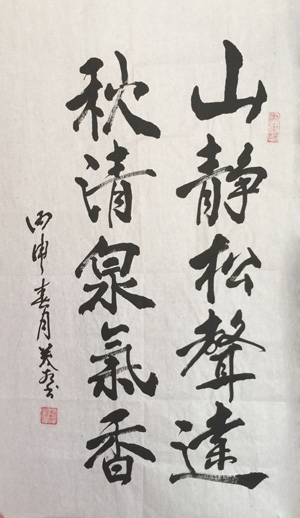 山靜松聲遠
秋清泉氣香
丙申春月